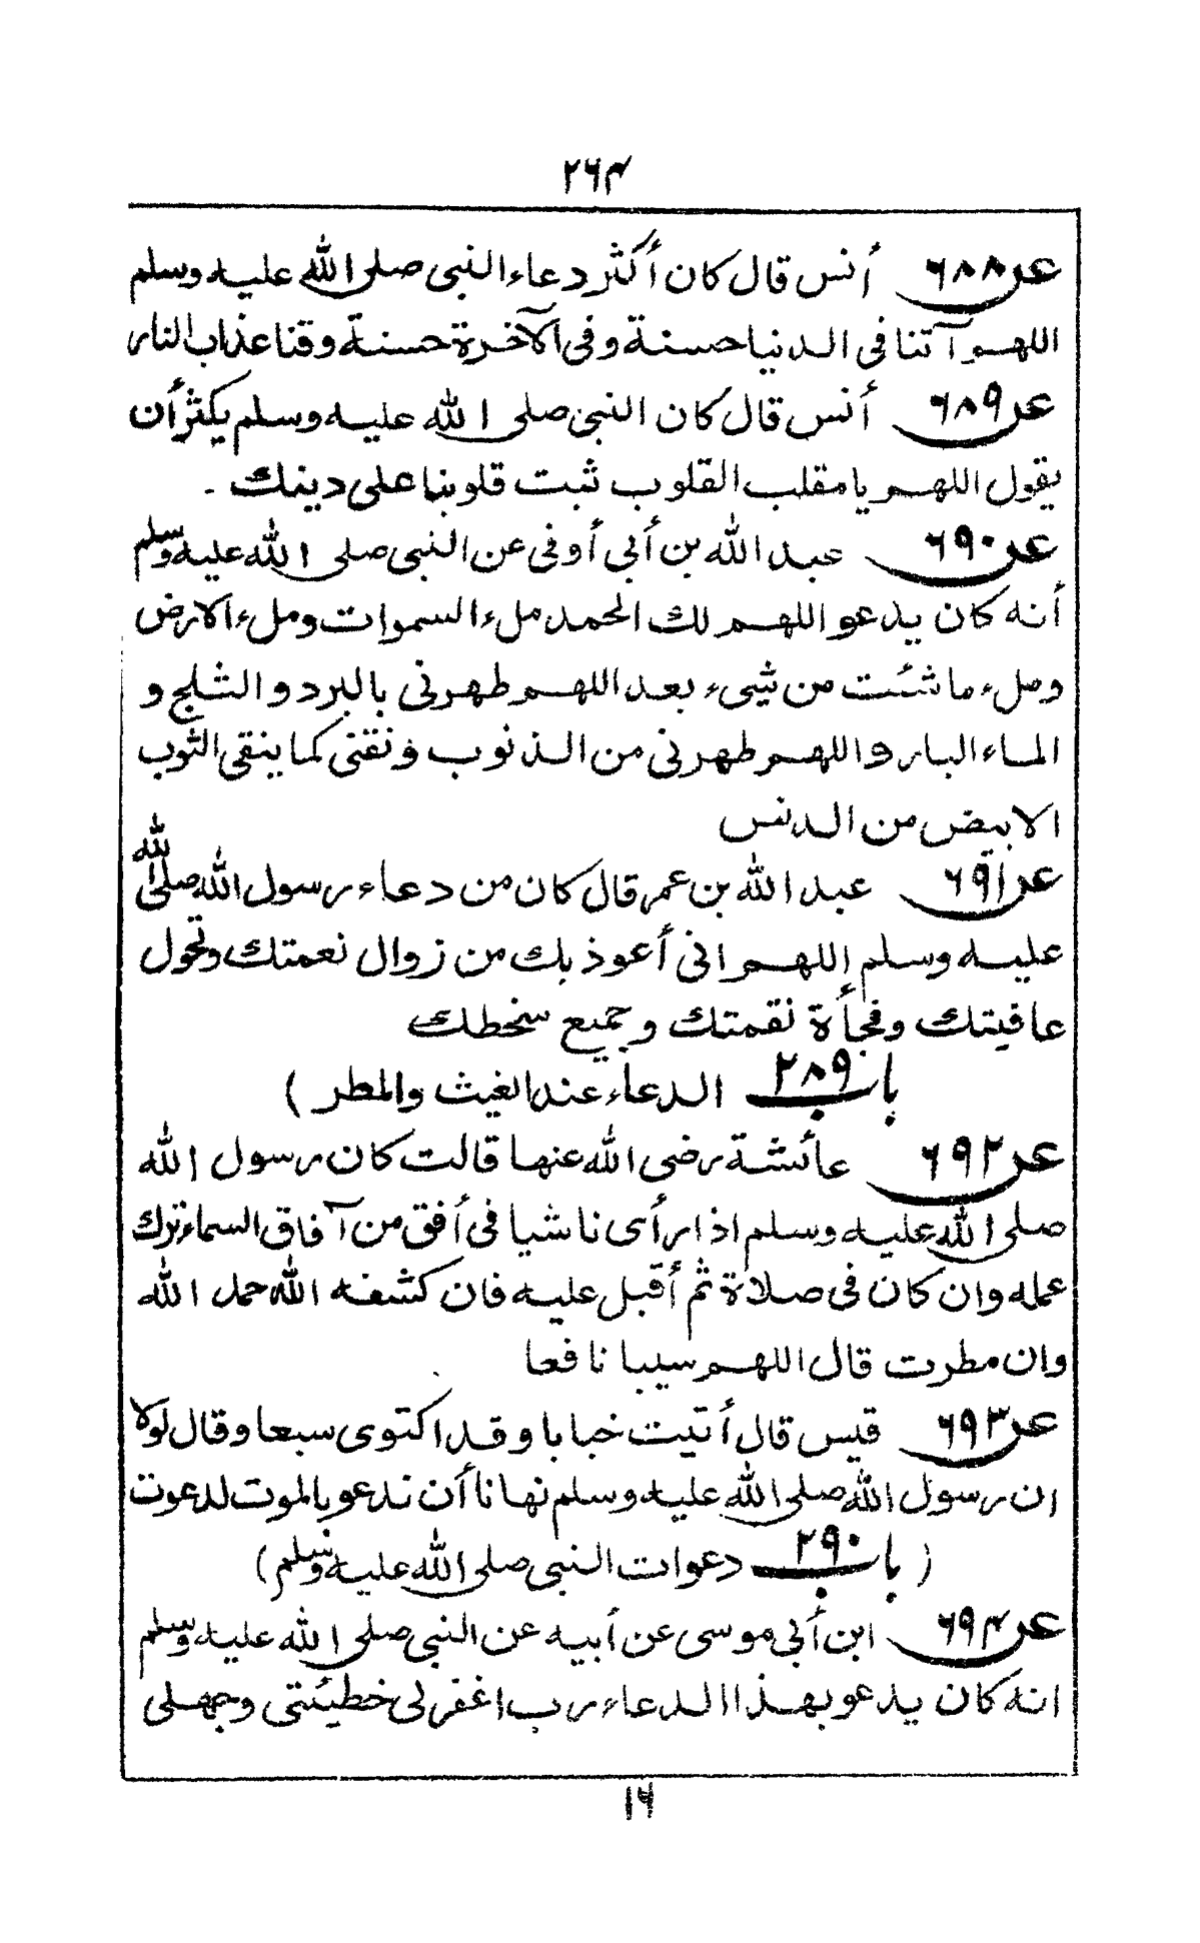 ٢٦۴
عن ٦٨٨ أنس قال كان أكثر دعاء النبى صلى الله عليه وسلم
اللهم آتنا فى الدنيا حسنة وفى الآخرة حسنة وقنا عذاب النار
عن ٦٨٩ أنس قال كان النبى صلى الله عليه وسلم يكثر أن
يقول اللهم يا مقلب القلوب ثبت قلوبنا على دينك -
عن ٦٩٠ عبد الله بن أبي أوفى عن النبى صلى الله عليه وسلم
أنه كان يدعو اللهم لك الحمد ملء السموات وملء الارض
وملء ما شئت من شيىء بعد اللهم طهرنى بالبرد والثلج و
الماء البارد اللهم طهرنى من الذنوب ونقنى كما ينقى الثوب
الابيض من الدنس
عن ٦٩١ عبد الله بن عمر قال كان من دعاء رسول الله صلى الله
عليه وسلم اللهم انى أعوذ بك من زوال نعمتك وتحول
عافيتك وفجأة نقمتك وجميع سخطك
باب ٢٨٩ الدعاء عند الغيث والمطر )
عن ٦٩٢ عائشة رضى الله عنها قالت كان رسول الله
صلى الله عليه وسلم اذا رأى ناشيا فى أفق من آفاق السماء ترك
عمله وان كان فى صلاة ثم أقبل عليه فان كشفه الله حمد الله
وان مطرت قال اللهم سيبا نافعا
عن ٦٩٣ قيس قال أتيت خبابا وقد اكتوى سبعا وقال لولا
ان رسول الله صلى الله عليه وسلم نهانا أن ندعو بالموت لدعوت
( باب ٢٩٠ دعوات النبى صلى الله عليه وسلم )
عن ٦٩۴ ابن أبي موسى عن أبيه عن النبى صلى الله عليه وسلم
انه كان يدعو بهذا الدعاء رب اغفر لى خطيئتى وجهلى
١٦